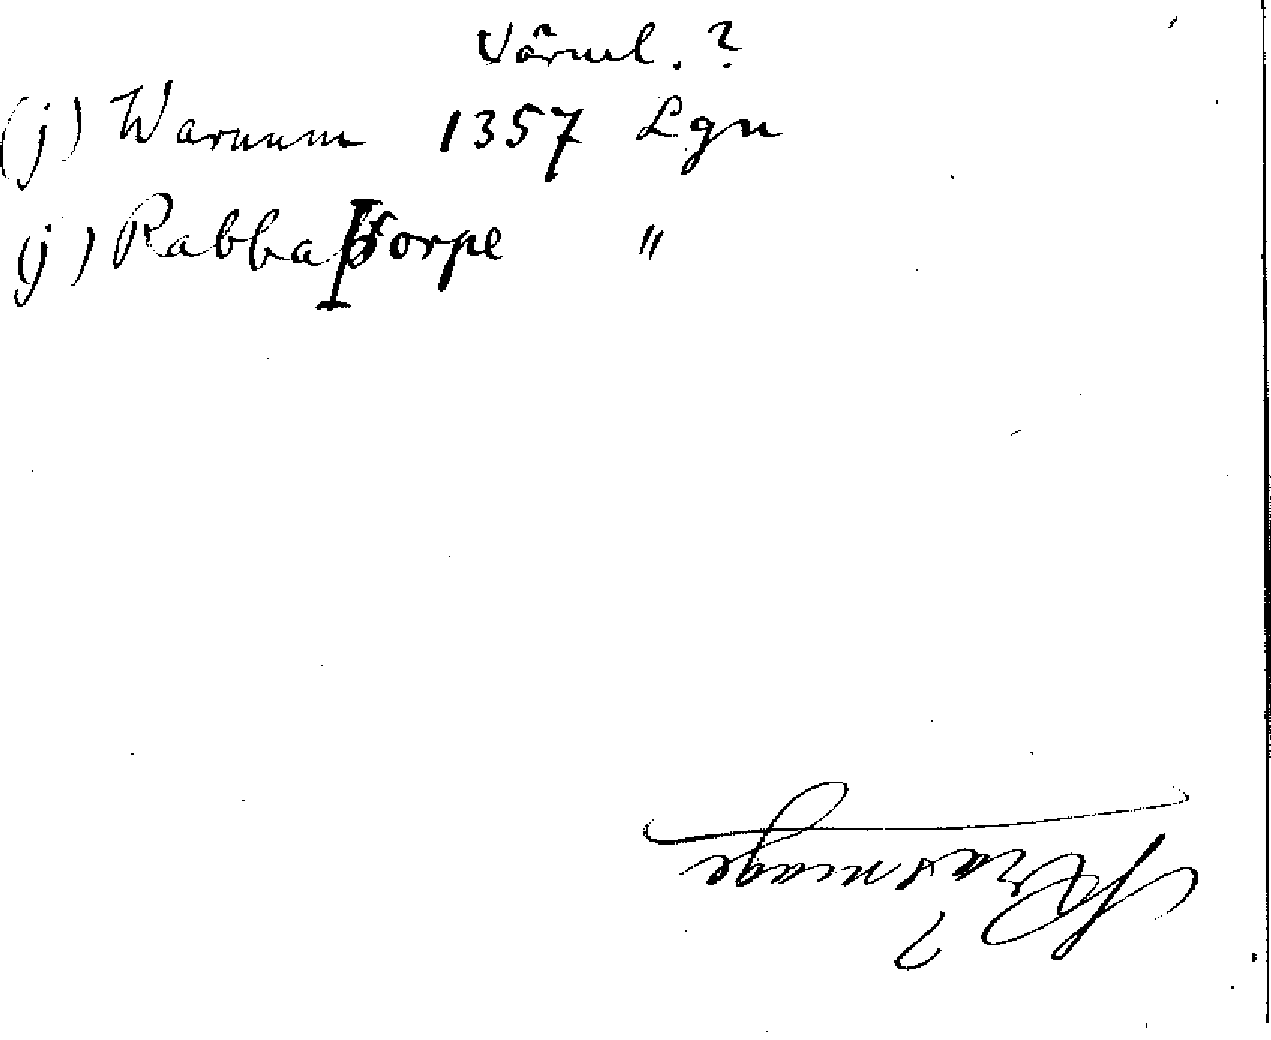 Värml. ?
(j) Warnum 1357 Lgn
(j) Rabbatorpe "
?